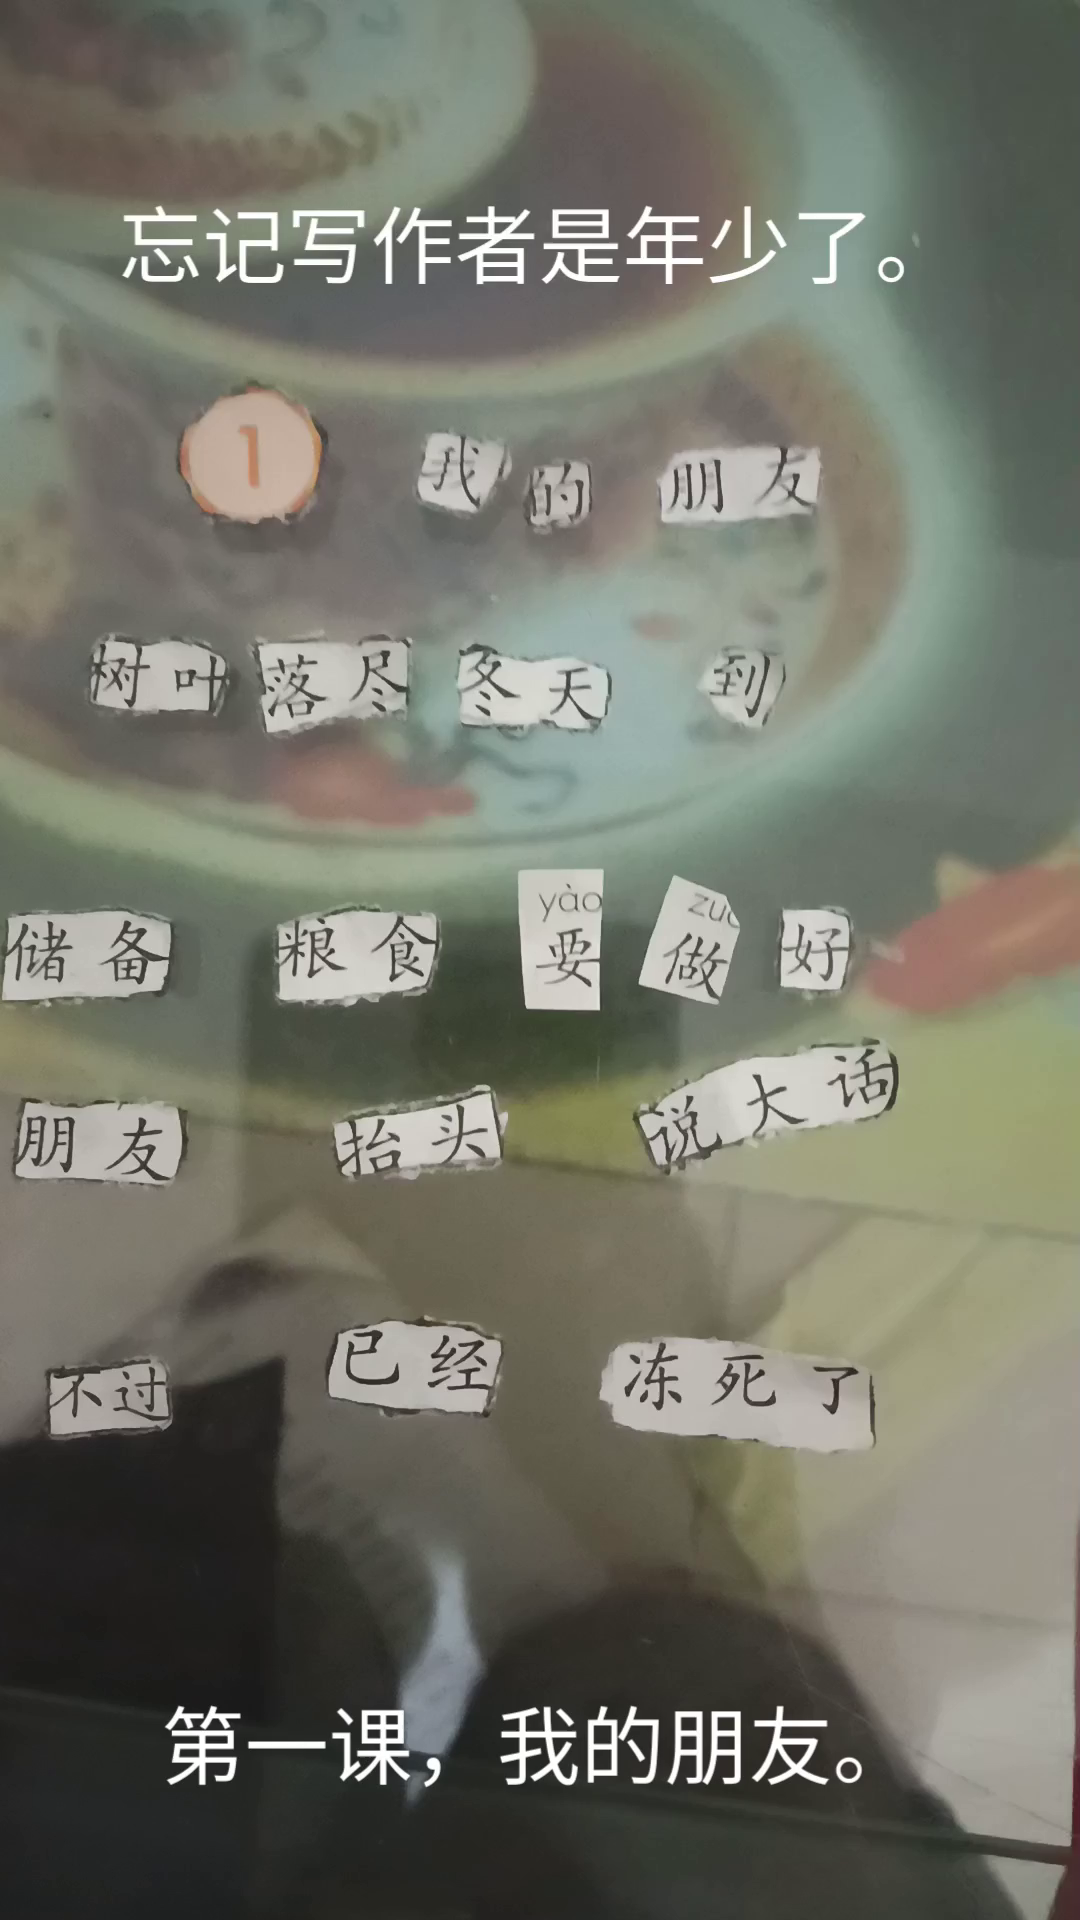 忘记写作者是年少了。
1 我的朋友
树叶落尽冬天到
yào zuò
储备粮食要做好
朋友抬头说大话
不过已经冻死了
第一课，我的朋友。